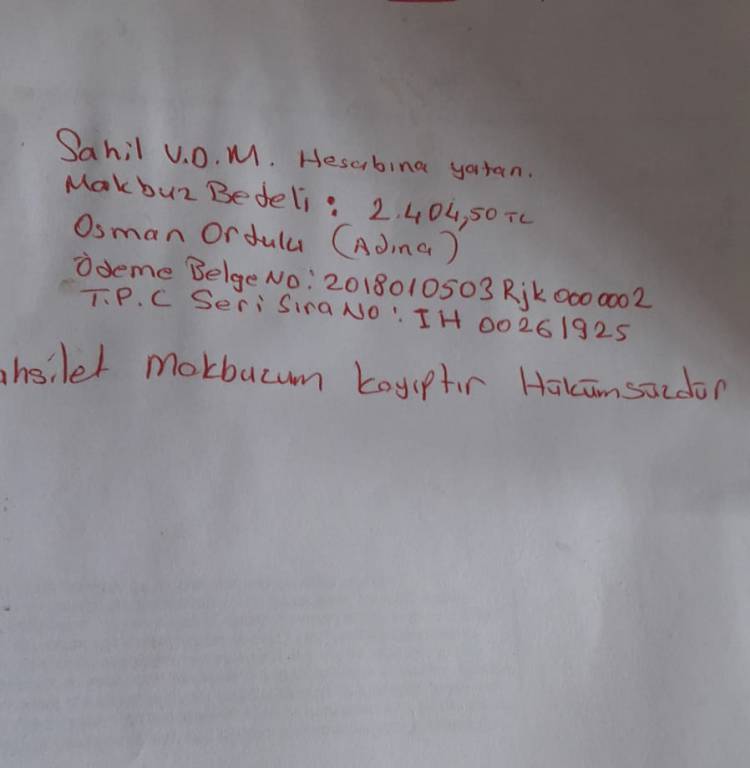 Sahil V.D.M. Hesabına yatan.
Makbuz Bedeli: 2.404,50 TL
Osman Ordulu (Adına)
Ödeme Belge No: 2018010503Rjk0000002
T.P.C Seri Sıra No: IH 00261925
ahsilet Makbuzum kayıptır Hükümsüzdür